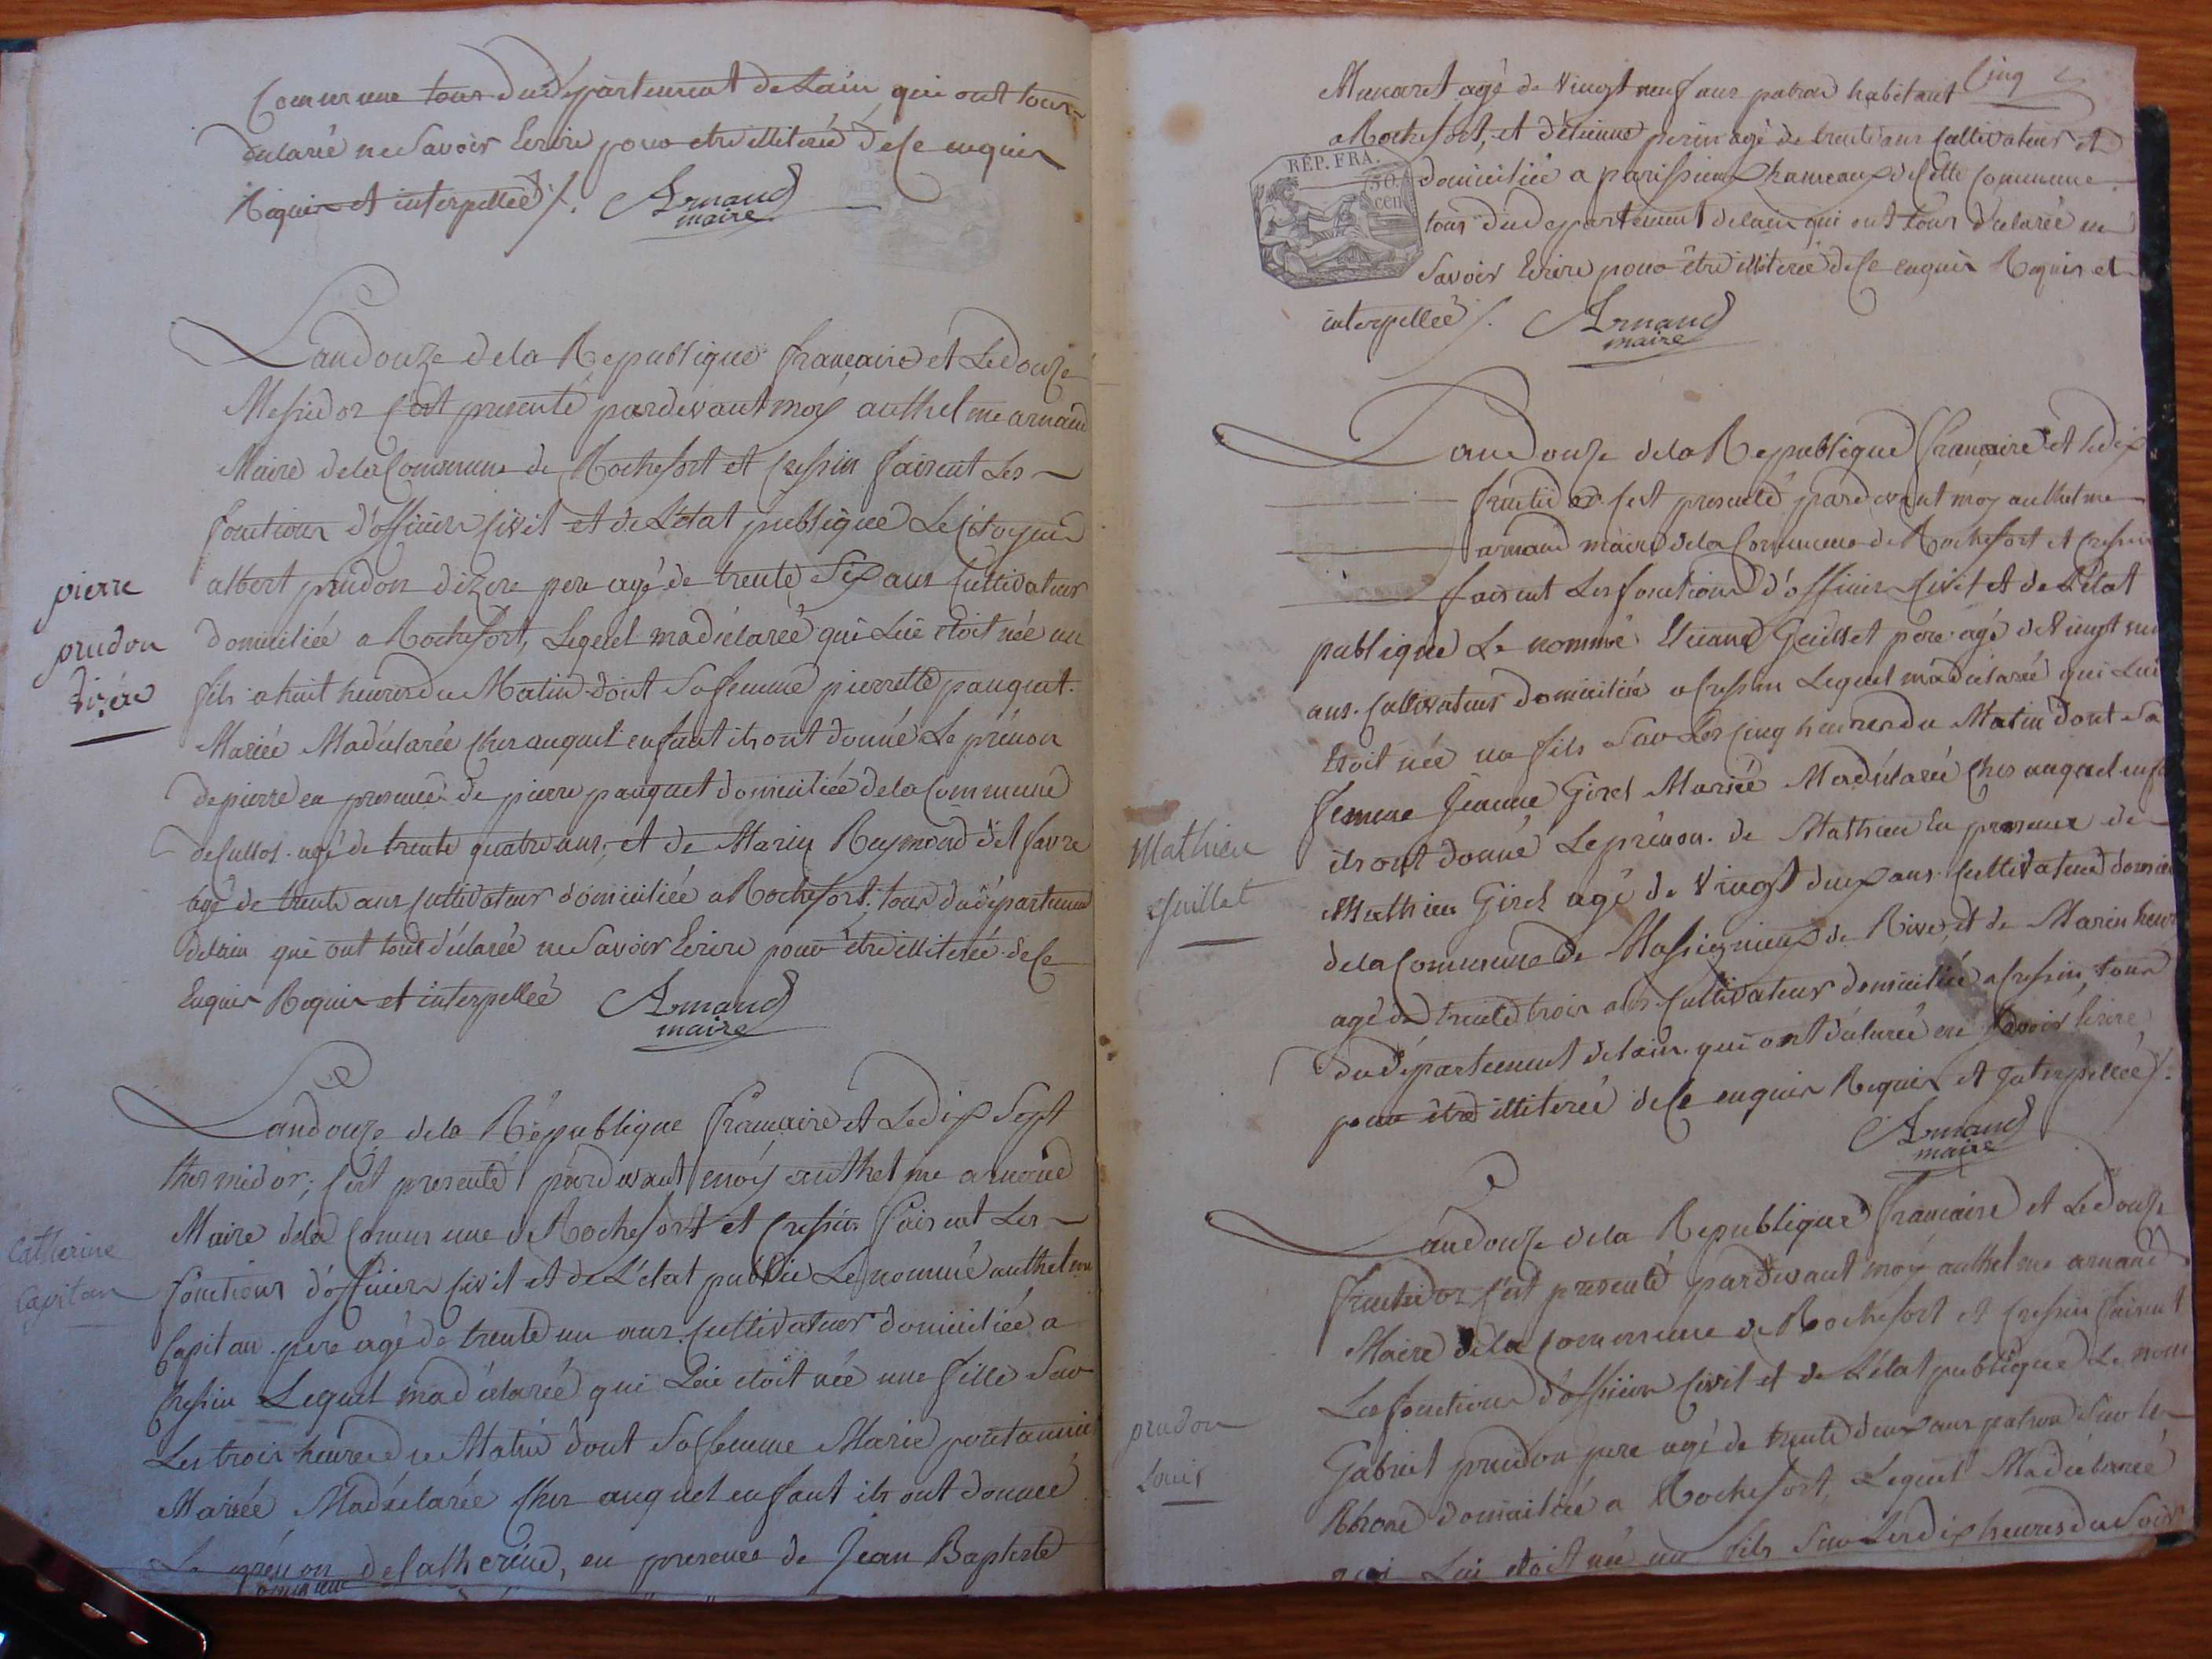 Commune tous du département de Lain qui ont tous
déclarée ne Savoir Ecrire pour etre illiterée de ce enquir
Requir et interpellée /. Armand
maire
Landouze de la Republique françaire et Le douze
Messidor s'est presenté pardevant moy anthelme armand
Maire de la Commune de Rochefort et Cressin faisent Les
fonctions d'officier Civil et de L'état publique Le Citoyen
albert prudon dizere pere agé de trente Six ans Cultivateur
domiciliée a Rochefort, Lequel ma déclarée qui Lui etoit née un
fils a huit heures du Matin dont Sa femme pierrette pauquet
Mariée Ma déclarée Cher auquel enfant ils ont donné Le prénon
de pierre en presence de pierre pauquet domiciliée de la Commune
de Cullos agé de trente quatre ans, et de Marin Reymond dit favre
agé de trente ans Cultivateur domiciliée a Rochefort, tous du département
delain qui ont tous déclarée ne Savoir Ecrire pour être illiterée de ce
Enquir Requir et interpellée Armand
maire
pierre
prudon
dizére
Landouze de la République françaire et Le dix Sept
thermidor; s'est presenté pardevant moy anthelme armand
Maire de la Commune de Rochefort et Cressin faisent Les
fonctions d'officier Civil et de L'état public Le nommé anthelme
Capitan pere agé de trente un ans Cultivateur domiciliée a
Cressin Lequel ma déclarée qui Lui etoit née une fille Sur
Les trois heures du Matin dont Sa femme Marie
Mariée Ma déclarée Cher auquel enfant ils ont donnée
Le prénon de Catherine, en presence de Jean Baptiste
Catherine
Capitan
Commune
Cinq
Munaret agé de vingt neuf ans patron habitant
a Rochefort, et d'étienne perin agé de trente ans Cultivateur et
domiciliée a parissieux hameaux de Cette Commune
tous du departement delain qui ont tous déclarée ne
Savoir Ecrire pour être illiterée de ce enquir Requir et
interpellée /. Armand
maire
REP. FRA.
50.
cen.
Landouze de la Republique françaire et le dix
fructidor s'est presenté pardevant moy anthelme
armand maire de la Commune de Rochefort et Cressin
faisent Les fonctions d'officier Civil et de L'état
publique Le nommé Guillet père agé de vingt
ans Cultivateur domiciliée a Cressin Lequel ma déclarée qui Lui
Etoit née un fils Sur Les Cinq heures du Matin dont Sa
femme Jeanne Girel Mariée Ma déclarée Cher auquel
ils ont donné Le prénon de Mathieu En presence de
Mathieu Girel agé de Vingt deux ans Cultivateur
de la Commune de Massignieux de Rive, et de Marin
agé de trente trois ans Cultivateur domiciliée a Cressin, tous
du département delain qui ont déclarée ne Savoir Ecrire
pour être illiterée de ce enquir Requir et Interpellée /.
Armand
maire
Mathieu
Guillet
Landouze de la Republique françaire et Le douze
fructidor s'est presenté pardevant moy anthelme armand
Maire de la Commune de Rochefort et Cressin faisent
Les fonctions d'officier Civil et de L'état publique Le
Gabriel prudon pere agé de trente deux ans patron Sur le
Rhone domiciliée a Rochefort, Lequel Ma déclarée
qui Lui etoit né un fils Sur Les dix heures du Soir
prudon
Louis